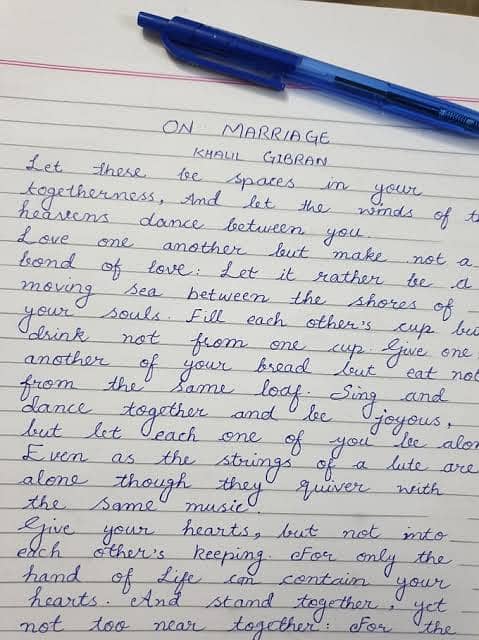 ON MARRIAGE
KHALIL GIBRAN
Let these be spaces in your
togetherness, And let the winds of th
heavens dance between you.
Love one another but make not a
bond of love: Let it rather be a
moving sea between the shores of
your souls. Fill each other's cup bu
drink not from one cup. Give one
another of your bread but eat not
from the same loaf. Sing and
dance together and be joyous,
but let each one of you be alon
Even as the strings of a lute are
alone though they quiver with
the same music.
Give your hearts, but not into
each other's keeping. For only the
hand of Life can contain your
hearts. And stand together, yet
not too near together: For the